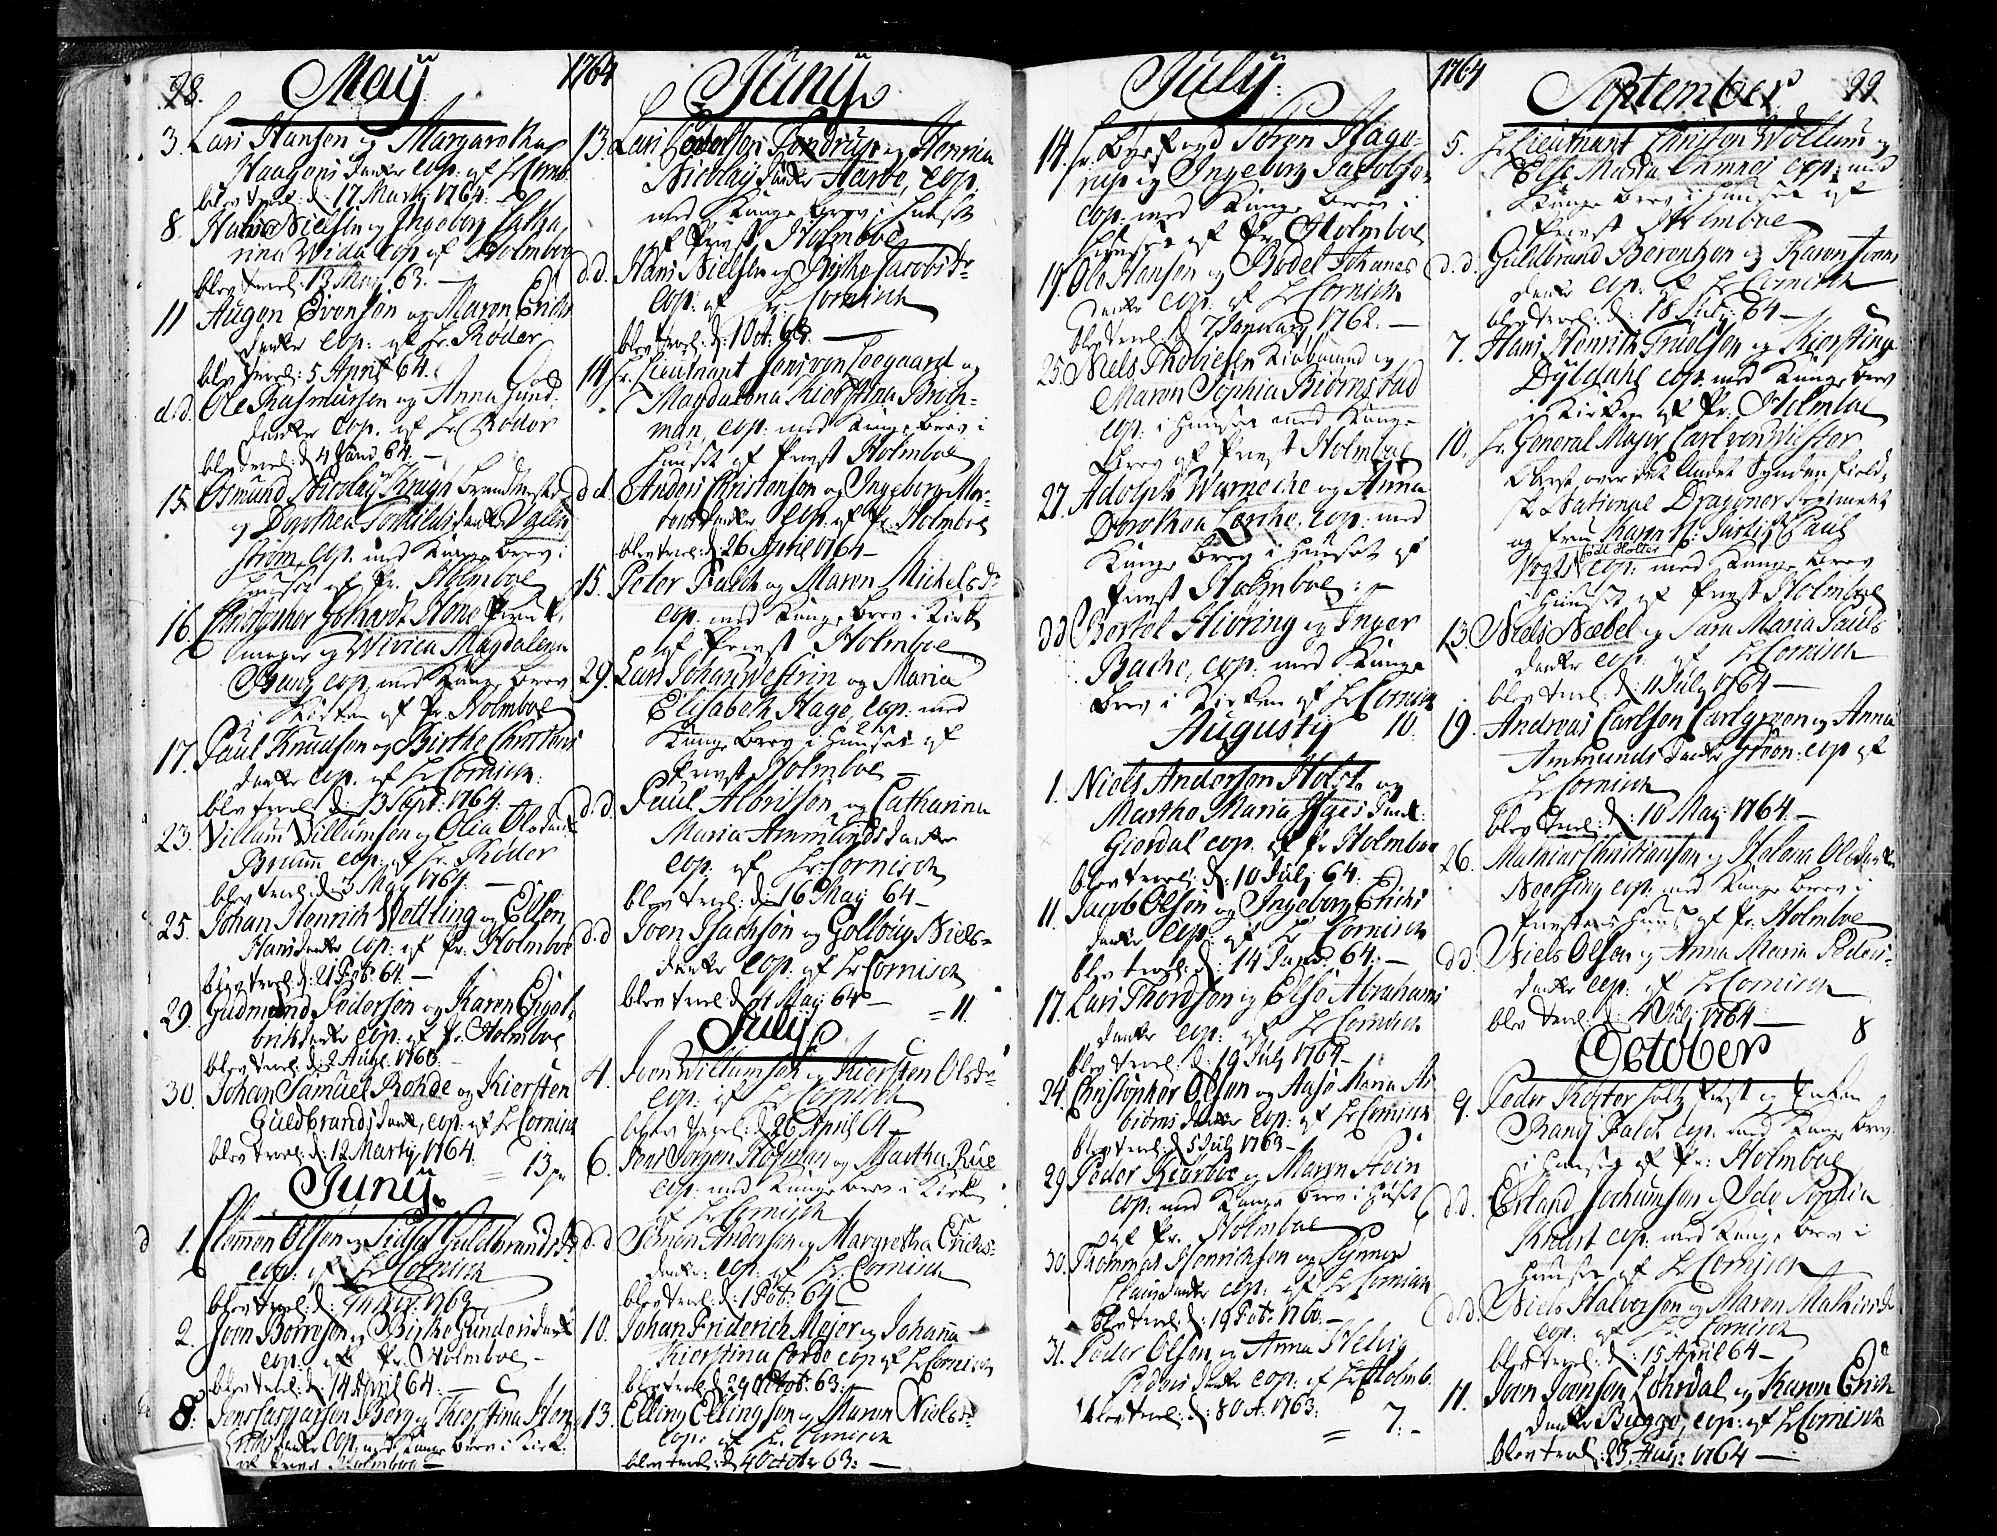 98.
May
1764
3. Lars Hansen og Margarethe
Haagens danter cop: af Hr Corni.
blev trol: d: 17 Marti 1764.
8. Hans Nielsen og Ingeborg Catha
rina Wida cop af Pr Holmboe
blev trol: 13 May 63.
11 Augen Evensen og Maren Erichs
danter cop: af Hr. Röder
blev trol: 5 April 64.
d.d. Ole Rasmussen og Anna Gund.
danter cop. af Hr Röder
blev trol: d 4 Janv 64.
15. Osmund Nicolay Kragh Brandmester
og Dorothea
ström, cop. med Kongebrev i
Huuset af Pr. Holmboe
16. Christopher Hone
mager og Wivica Magdalena
cop. med Konge brev
i Kirken af Pr. Holmboe
17. Paul Knudsen og Birthe Christens
danter cop. af Hr Cornisch.
blev trol: d: 13 Sept: 1764.
23. Villum Villumsen og Olia Olsdanter
Bruun cop: af Hr. Röder
blev trol: d: 3 May 1764.
25. Johan Henrich Wettling og Ellen
Hansdanter cop: af Pr. Holmboe
blev trol: d: 21 Feb: 64.
29. Gudmund Pedersen og Karen Engel
brittdanter cop: af Pr. Holmboe
blev trol: d: 2 Aug. 1763.
30. Johan Samuel Rohde og Kiersten
Guldbrandsdant, cop: af Hr Cornisch
blev trol: d: 12 Martij 1764.
= 13 pr
Junij
1. Clemen Olsen og Guldbrandsdr
cop: af Hr Cornisch
blev trol: d: 1763
2. Joen Börresen og Birthe Gundersdant
cop: af Pr. Holmboe
blev trol: d: 14 April 64.
8. Jens Caspersen Berg og Kierstina
danter cop. med Konge brev i Kirk.
af Provst Holmboe
Junij
13. Lars Pedersen og Henrica
Nicolay danter Aaroe, cop.
med Konge brev i Huuset
af Provst Holmboe
d.d. Hans Nielsen og Birthe Jacobsdr
cop: af Hr Cornisch
blev trol: d: 1 Oct. 63.
14. Hr. Lieutnant Jens von Leegaard og
Magdalena Kierstina Brich-
man, cop: med Konge brev i
Huuset af Provst Holmboe
d.d. Anders Christensen og Ingeborg Mor-
tensdanter cop. af Pr. Holmboe
blev trol: d 26 April 1764
15. Peter Falch og Maren Michelsdr
cop. med Konge brev i Kirk
af Provst Holmboe
29. Lars Johan Westrin og Maria
Elisabeth Hage, cop: med
Konge brev i Huuset af
Provst Holmboe
d.d. Paul Albrissen og Catharina
Maria Ammundsdanter
cop: af Hr: Cornisch
blev trol: d: 16 May 64
d.d. Joen Isachsen og Golborg Niels-
danter cop. af Hr Cornisch
blev trol d: 1 May 64
= 11.
July
4. Joen Willumsen og Kiersten Olsdr
cop: af Hr Cornisch
blev trol: d 26 April 64
6. Jens Jörgen Hoffman og Martha Rue
cop. med Konge brev i Kirken
af Hr Cornisch
d.d. Simen Andersen og Margretha Erichs-
danter. cop. af Hr: Cornisch
blev trol: d: 1 Feb: 64
10. Johan Friderich Mejer og Johana
Kierstina Corde cop af Hr Cornisch
blev trol d 29 Octob: 63.
13. Elling Ellingsen og Maren Nielsdr
cop: af Hr. Cornisch
blev trol: d 4 Octobr 63:
July.
1764
14. Hr. Sören Hage-
rup og Ingeborg Jacobsen
cop: med Konge brev i
Huuset af Pr. Holmboe
19. Ole Hansen og Bodel Johanes
danter cop: af Hr Cornisch
blev trol d 7 January 1762.
25. Niels Kiöbmand og
Maren Sophia Biörnstad
cop: i Huuset med Konge
brev af Provst Holmboe
27. Adolph Warneche og Anna
Dorothea Lerche cop: med
Konge brev i Huuset af
Provst Holmboe
d d Bertel Hiörring og Inger
Bache, cop. med Konge
brev i Kirken af Hr Cornisch
Augustij
10.
1. Niels Andersen Holst og
Marthe Maria dant:
Gierdal cop. af Pr Holmboe
blev trol: d: 10 July 64.
11. Jacob Olsen og Ingeborg Erichs
danter cop: af Hr Cornisch
blev trol: d: 14 Janv. 64.
17. Lars Thordsen og Else Abrahams
danter cop: af Hr Cornisch
blev trol: d: 19 July 1764
24. Christopher Olsen og Aase Maria As-
biörns danter cop: af Hr Cornisch
blev trol: d 5 July 1763
29 Peder Kierboe og Maren Stein
cop: med Konge brev i Huset
af Pr. Holmboe
30. Thommas Henrichsen og Synneve
danter cop: af Hr Cornisch
blev trol: d: 19 Feb: 1760.
31. Peder Olsen og Anna Helvig
Peders danter cop: af Hr Holmb.
blev trol: d: 8 Oct. 1763.
= 7.
September
99
5. Hr Lieutnant Christen Wollum og
Else Maria cop: med
Konge brev i Huuset af
Provst Holmboe
d.d. Guldbrand Berentzen og Karen Joens
danter cop: af Hr Cornisch
blev trol: d: 18 July 64
7. Hans Henrich Truelsen og Kierstine
Dybdahl cop. med Konge brev
i Kirken af Pr. Holmboe
10. Hr. General Major Carl von
Oberst over det Andet Syndenfield-
ske National Dragoner Regiment
og Frue Karen Sl: Justitz Paul
Vogts född Holter cop: med Konge brev
i Huuset af Provst Holmboe
13. Niels Næbel og Sara Maria Pauls
danter cop. af Hr Cornisch
blev trol: d. 4 July 1764
19. Andreas Carlsen Carlgreen og Anna
Ammunds danter Green: cop af
Hr Cornisch
blev trol: d: 10 May 1764.
26. Mathias Christiansen og Helena Olsdanter
cop. med Konge brev i
Provstens Huus af Pr. Holmboe
d d. Niels Olsen og Anna Maria Peders-
danter cop. af Hr Cornisch
blev trol: d: 4 July 1764
8
October
9. Peder og Enken
Falch cop. med Konge brev.
i Huuset af Pr: Holmboe
d.d. Erland Jochumsen og Ide Sophia
cop: med Konge brev i
Huuset af Hr Cornisch
d.d. Niels Halversen og Maren Mathiesdr
cop. af Hr. Cornisch
blev trol: d: 15 April 64
11. Joen Joensen Löhrdal og Karen Erich
danter Bugge, cop: af Hr Cornisch
blev trol: 23 Aug: 1764